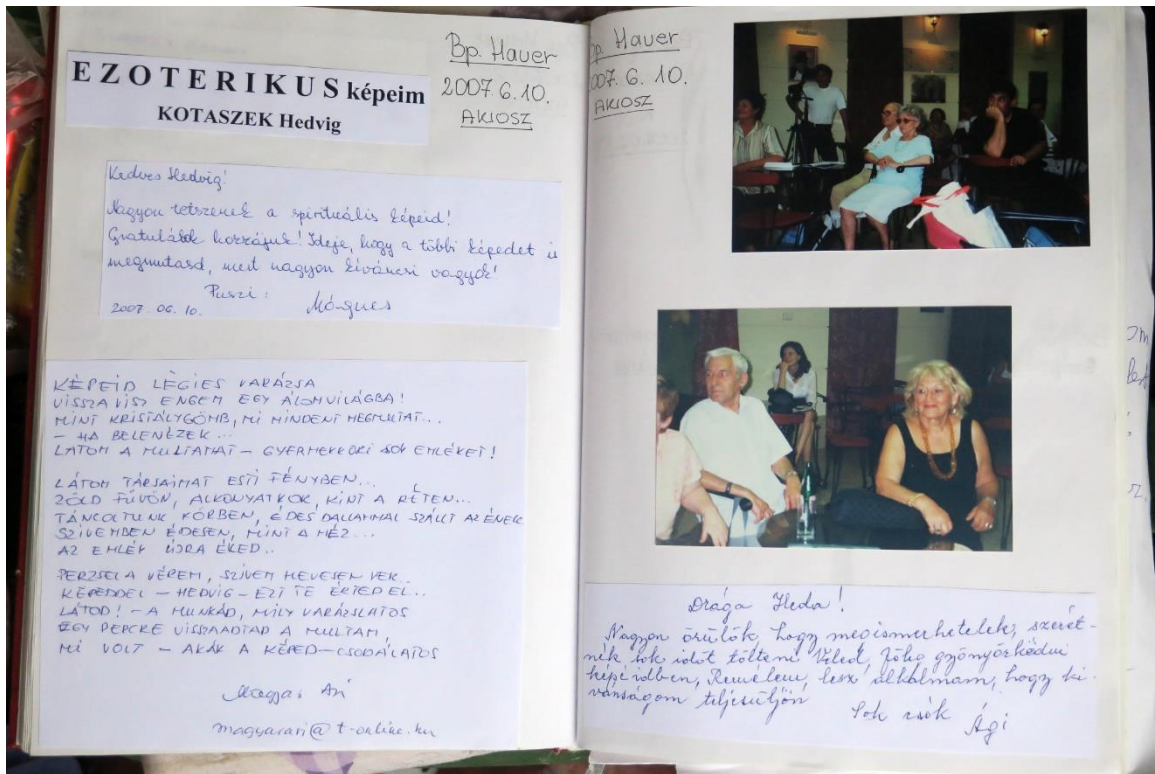 EZOTERIKUS képeim
KOTASZEK Hedvig
Bp. Hauer
2007.6.10.
AKIOSZ
Kedves Hedvig!
Nagyon tetszenek a spirituális képeid!
Gratulálok hozzájuk! Ideje, hogy a többi képedet is
megmutasd, mert nagyon kíváncsi vagyok!
Puszi:
2007.06.10.
KÉPEID LÉGIES VARÁZSA
VISSZA VISZ ENGEM EGY ÁLOMVILÁGBA!
MINT KRISTÁLYGÖMB, MI MINDENT MEGMUTAT...
- HA BELENÉZEK...
LÁTOM A MULTAMAT - GYERMEKKORI SOK EMLÉKET!
LÁTOM TÁRSAIMAT ESTI FÉNYBEN...
ZÖLD FŰVÖN, ALKONYATKOR, KINT A RÉTEN...
TÁNCOLTUNK KÖRBEN, ÉDES DALLAMMAL SZÁLLT AZ ÉNEK
SZIVEMBEN ÉDESEN, MINT A MÉZ...
AZ EMLÉK ÚJRA ÉKED..
PERZSEL A VÉREM, SZÍVEM HEVESEN VER..
KÉPEDDEL - HEDVIG - EZT TE ÉRTED EL..
LÁTOD! - A MUNKÁD, MILY VARÁZSLATOS
EGY PERCRE VISSZAADTAD A MULTAM
MI VOLT - AKÁR A KÉPED - CSODÁLATOS
Magyar Ari
magyarari@t-online.hu
Bp. Hauer
2007.6.10.
AKIOSZ
Drága Heda!
Nagyon örülök, hogy megismerhetelek, szeret-
nék sok időt tölteni Veled, gyönyörködni
képeidben, Remélem, lesz alkalmam, hogy kí-
vánságom teljesüljön
Sok csók Ági